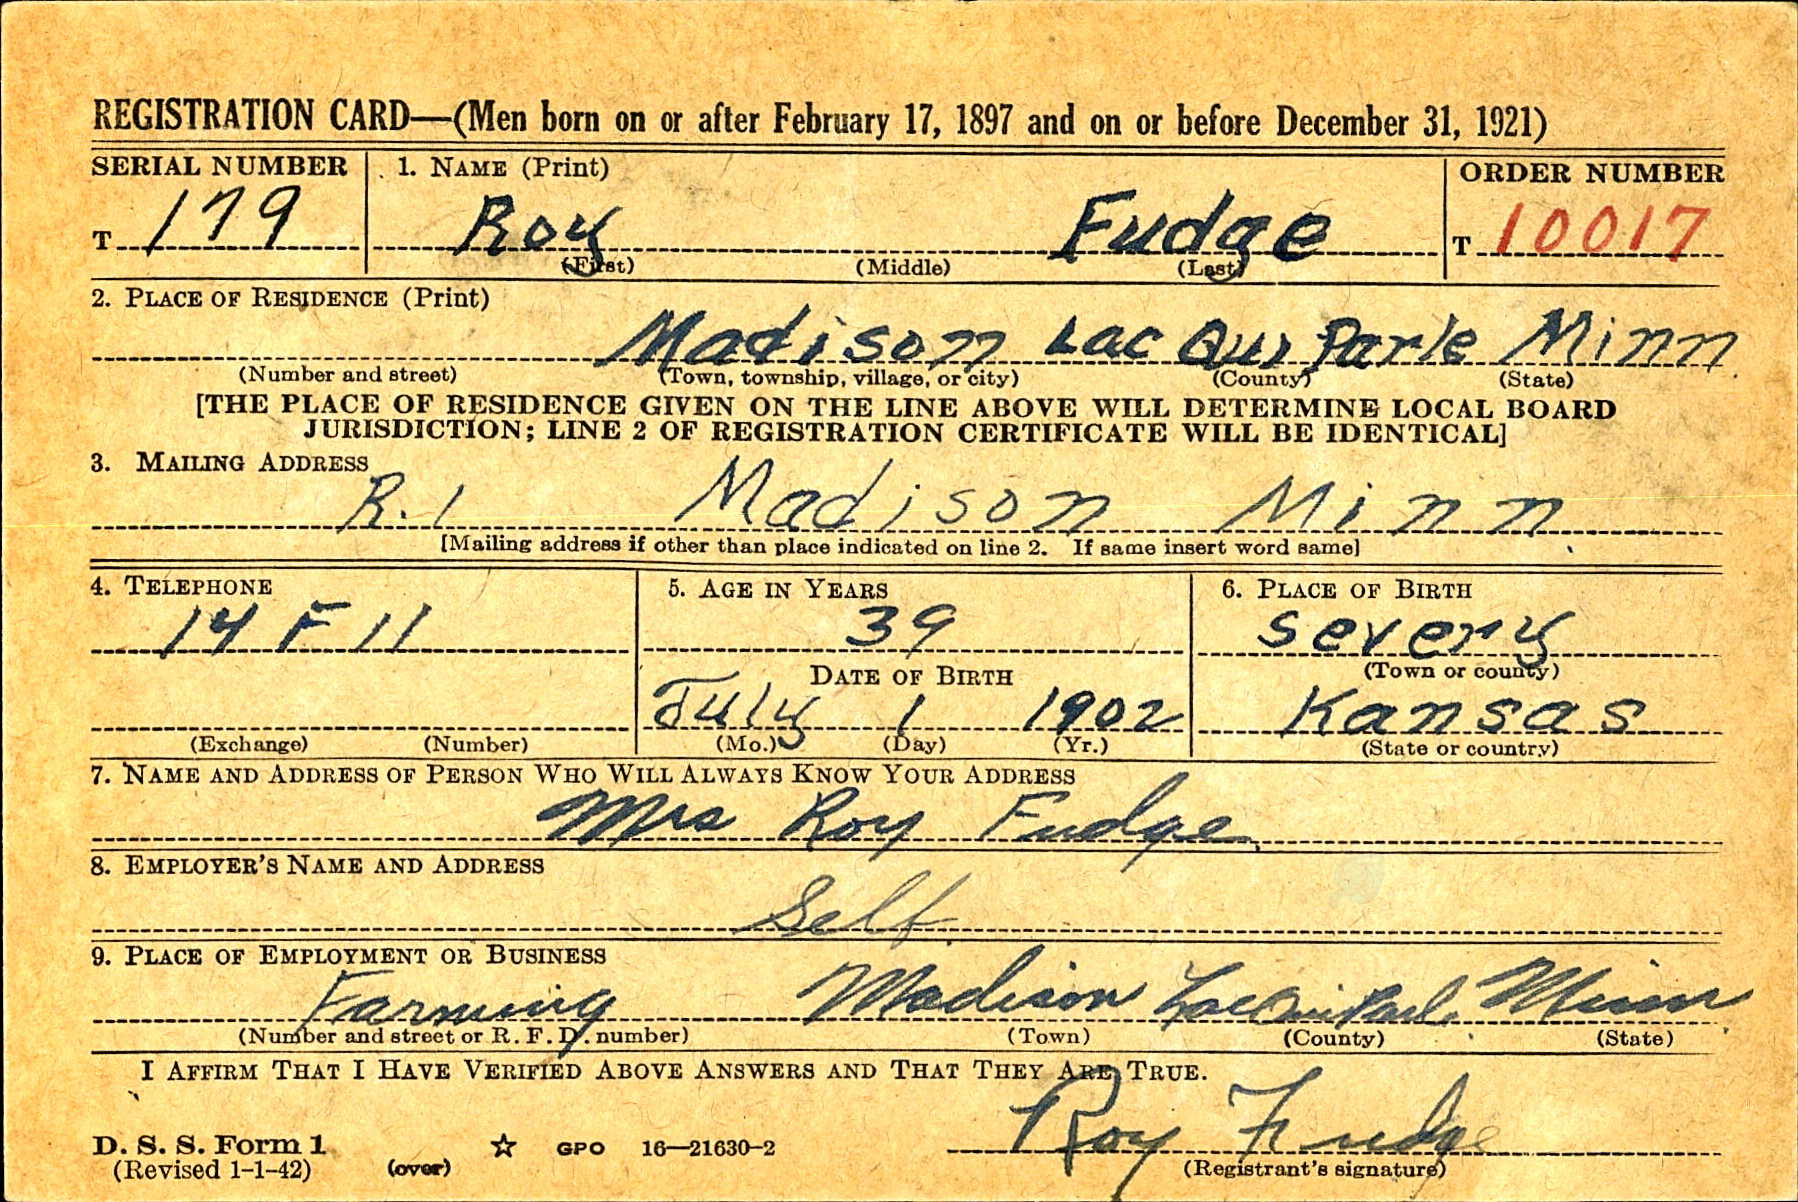 REGISTRATION CARD—(Men born on or after February 17, 1897 and on or before December 31, 1921)
SERIAL NUMBER 1. NAME (Print) ORDER NUMBER
T 179 Roy Fudge T 10017
(First) (Middle) (Last)
2. PLACE OF RESIDENCE (Print)
Madison Lac Qui Parle Minn
(Number and street) (Town, township, village, or city) (County) (State)
[THE PLACE OF RESIDENCE GIVEN ON THE LINE ABOVE WILL DETERMINE LOCAL BOARD
JURISDICTION; LINE 2 OF REGISTRATION CERTIFICATE WILL BE IDENTICAL]
3. MAILING ADDRESS
R. 1 Madison Minn
[Mailing address if other than place indicated on line 2. If same insert word same]
4. TELEPHONE 5. AGE IN YEARS 6. PLACE OF BIRTH
14 F 11 39 Severy
DATE OF BIRTH (Town or county)
July 1 1902 Kansas
(Exchange) (Number) (Mo.) (Day) (Yr.) (State or country)
7. NAME AND ADDRESS OF PERSON WHO WILL ALWAYS KNOW YOUR ADDRESS
Mrs Roy Fudge
8. EMPLOYER'S NAME AND ADDRESS
Self
9. PLACE OF EMPLOYMENT OR BUSINESS
Farming Madison Lac Qui Parl. Minn
(Number and street or R. F. D. number) (Town) (County) (State)
I AFFIRM THAT I HAVE VERIFIED ABOVE ANSWERS AND THAT THEY ARE TRUE.
Roy Fudge
D. S. S. Form 1 ☆ GPO 16—21630-2
(Revised 1-1-42) (over) (Registrant's signature)